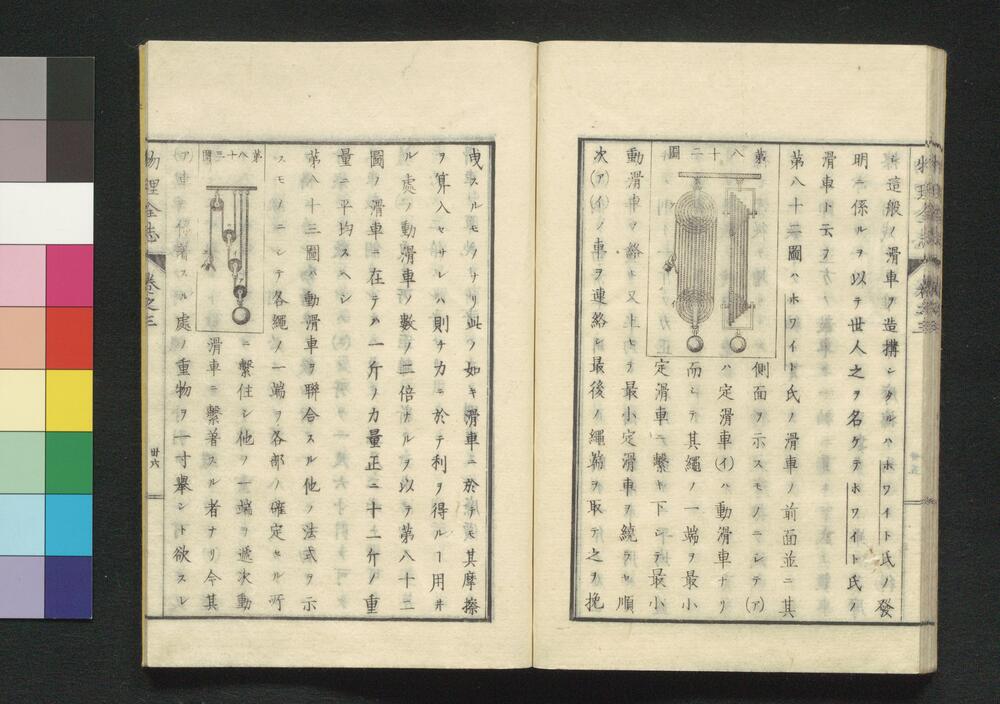 造般ノ滑車ヲ造搆シタルハホワイト氏ノ發
明ニ係ルヲ以テ世人之ヲ名ケテホワイト氏ノ
滑車ト云フ
第八十二圖ハホワイト氏ノ滑車ノ前面並ニ其
第八十二圖
側面ヲ示スモノニシテ(ア)
ハ定滑車(イ)ハ動滑車ナリ
而シテ其繩ノ一端ヲ最小
定滑車ニ繫キ下シテ最小
動滑車ヲ絡ヒ又上シテ最小定滑車ヲ繞ラセ順
次(ア)(イ)ノ車ヲ連絡シ最後ノ繩端ヲ取テ之ヲ挽
曵スルモノナリ此ノ如キ滑車ニ於テモ其摩擦
ヲ算入セサレハ則チ力ニ於テ利ヲ得ルヿ用井
ル處ノ動滑車ノ數ノ二倍ナルヲ以テ第八十二
圖ノ滑車ニ在テハ一斤ノ力量正ニ十二斤ノ重
量ニ平均スヘシ
第八十三圖ハ動滑車ヲ聯合スル他ノ法式ヲ示
スモノニシテ各繩ノ一端ヲ各部ノ確定セル所
第八十三圖
ニ繫住シ他ノ一端ヲ遞次動
滑車ニ繫著スル者ナリ今其
(ア)車ニ係著スル處ノ重物ヲ一寸擧ント欲スレ
物理全志
卷之三
卅六